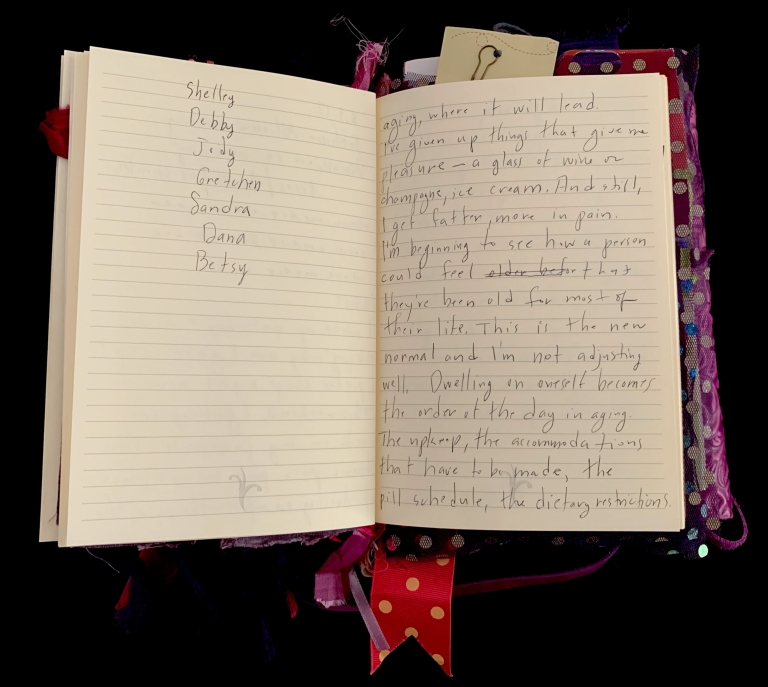 Shelley
Debby
Jody
Gretchen
Sandra
Dana
Betsy
aging, where it will lead.
I've given up things that give me
pleasure — a glass of wine or
champagne, ice cream. And still,
I get fatter, more in pain.
I'm beginning to see how a person
could feel older before that
they've been old for most of
their life. This is the new
normal and I'm not adjusting
well. Dwelling on oneself becomes
the order of the day in aging.
The upkeep, the accommodations
that have to be made, the
pill schedule, the dietary restrictions.